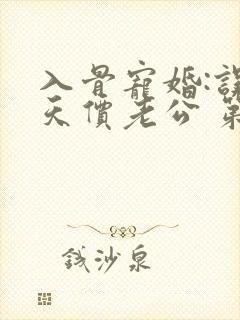 入骨寵婚:誤
天價老公 第
錢沙泉